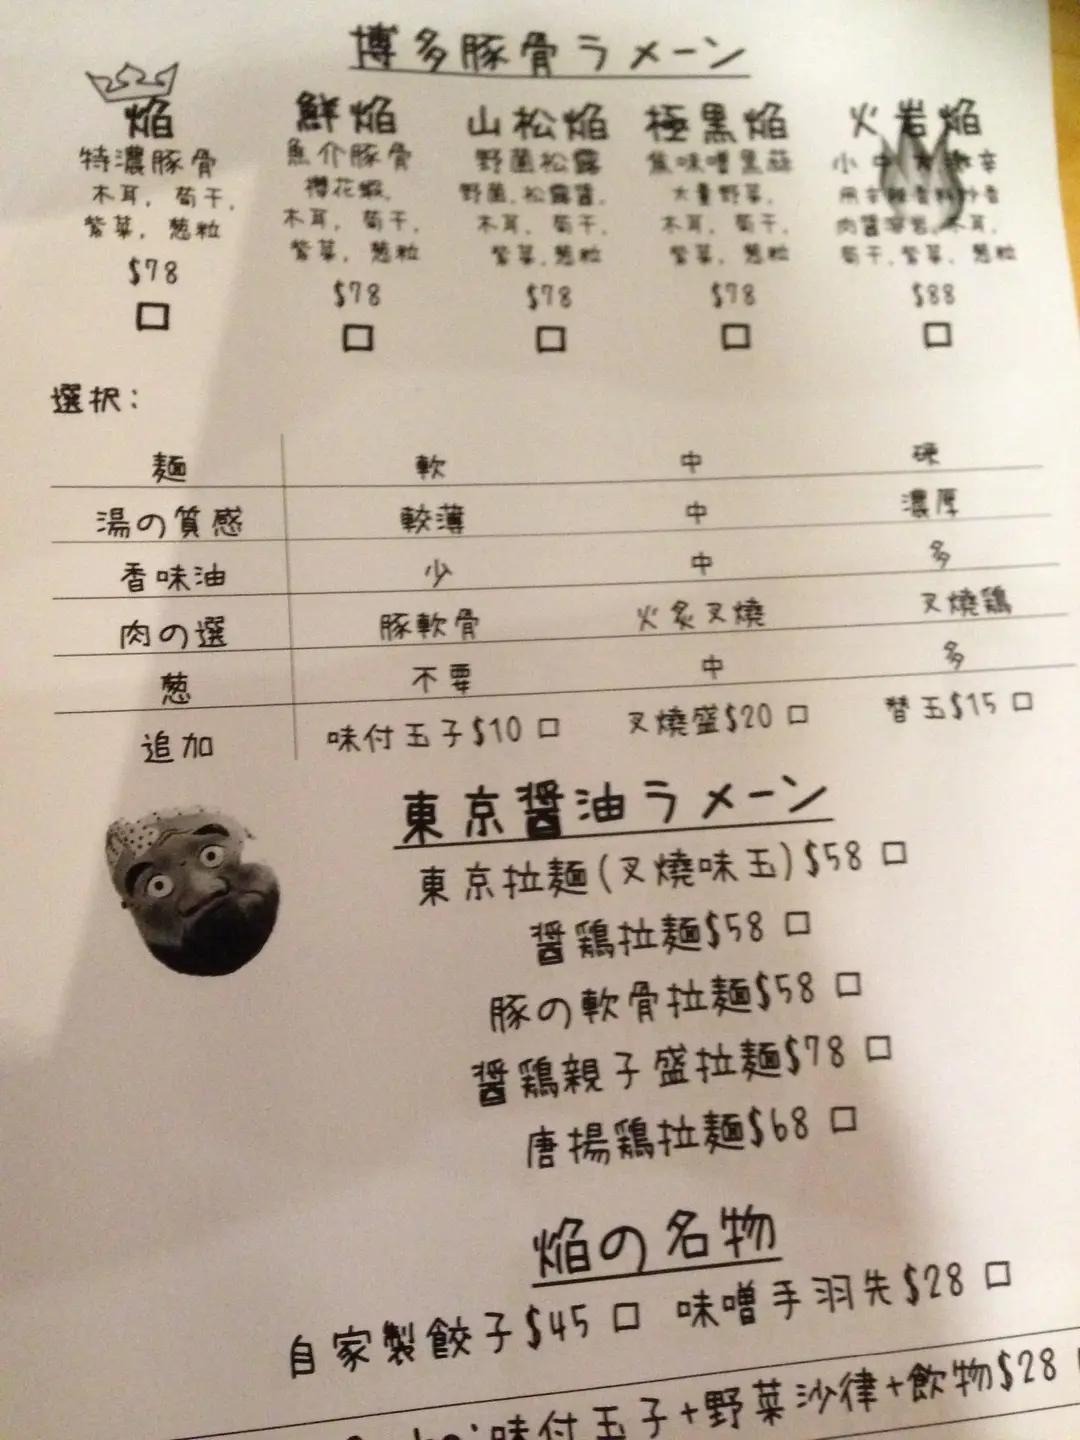 博多豚骨ラメーン
焔 鮮焔 山松焔 極黒焔 火岩焔
特濃豚骨 魚介豚骨 野菌松露 焦味噌黒蒜 小 中 大 激辛
木耳, 荀干, 櫻花蝦, 野菌, 松露醤, 大量野菜, 用辛辣香料炒香
紫菜, 葱粒 木耳, 荀干, 木耳, 荀干, 木耳, 荀干, 肉醤溶岩, 木耳,
紫菜, 葱粒 紫菜, 葱粒 紫菜, 葱粒 荀干, 紫菜, 葱粒
$78 $78 $78 $78 $88
選択:
麺 軟 中 硬
湯の質感 較薄 中 濃厚
香味油 少 中 多
肉の選 豚軟骨 火炙叉燒 叉燒鶏
葱 不要 中 多
追加 味付玉子$10 叉燒盛$20 替玉$15
東京醤油ラメーン
東京拉麺(叉燒味玉)$58
醤鶏拉麺$58
豚の軟骨拉麺$58
醤鶏親子盛拉麺$78
唐揚鶏拉麺$68
焔の名物
自家製餃子$45 味噌手羽先$28
味付玉子+野菜沙律+飲物$28